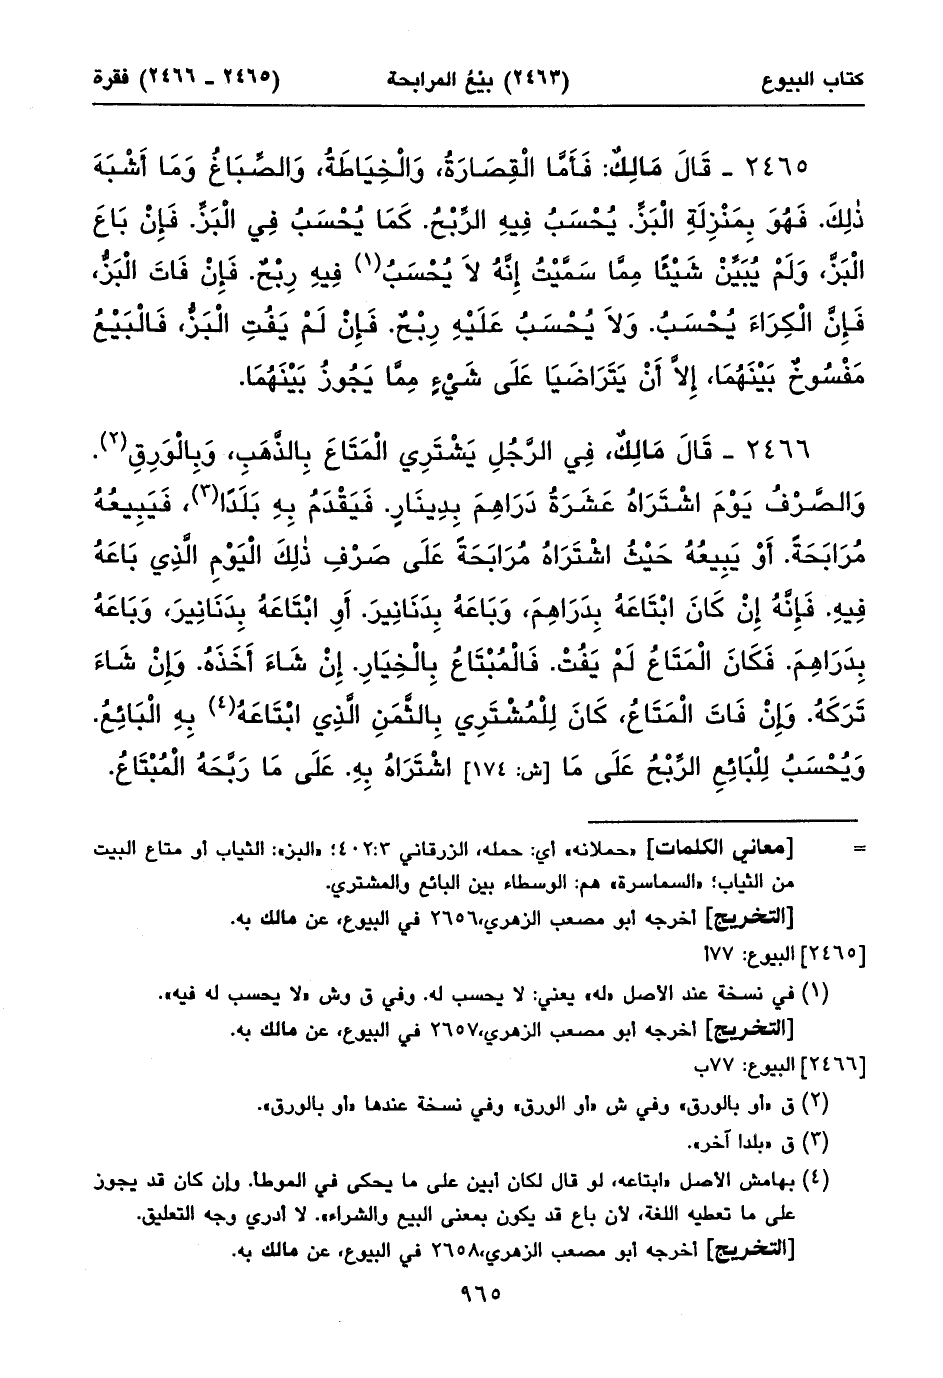 كتاب البيوع (٢٤٦٣) بيْعُ المرابحة (٢٤٦٥ ـ ٢٤٦٦) فقرة
٢٤٦٥ ـ قَالَ مَالِكٌ: فَأَمَّا الْقِصَارَةُ، وَالْخِيَاطَةُ، وَالصِّبَاغُ وَمَا أَشْبَهَ
ذٰلِكَ. فَهُوَ بِمَنْزِلَةِ الْبَزِّ. يُحْسَبُ فِيهِ الرِّبْحُ. كَمَا يُحْسَبُ فِي الْبَزِّ. فَإِنْ بَاعَ
الْبَزَّ، وَلَمْ يُبَيِّنْ شَيْئًا مِمَّا سَمَّيْتُ إِنَّهُ لاَ يُحْسَبُ(١) فِيهِ رِبْحٌ. فَإِنْ فَاتَ الْبَزُّ،
فَإِنَّ الْكِرَاءَ يُحْسَبُ. وَلاَ يُحْسَبُ عَلَيْهِ رِبْحٌ. فَإِنْ لَمْ يَفُتِ الْبَزُّ، فَالْبَيْعُ
مَفْسُوخٌ بَيْنَهُمَا، إِلاَّ أَنْ يَتَرَاضَيَا عَلَى شَيْءٍ مِمَّا يَجُوزُ بَيْنَهُمَا.
٢٤٦٦ ـ قَالَ مَالِكٌ، فِي الرَّجُلِ يَشْتَرِي الْمَتَاعَ بِالذَّهَبِ، وَبِالْوَرِقِ(٢).
وَالصَّرْفُ يَوْمَ اشْتَرَاهُ عَشَرَةُ دَرَاهِمَ بِدِينَارٍ. فَيَقْدَمُ بِهِ بَلَدًا(٣)، فَيَبِيعُهُ
مُرَابَحَةً. أَوْ يَبِيعُهُ حَيْثُ اشْتَرَاهُ مُرَابَحَةً عَلَى صَرْفِ ذٰلِكَ الْيَوْمِ الَّذِي بَاعَهُ
فِيهِ. فَإِنَّهُ إِنْ كَانَ ابْتَاعَهُ بِدَرَاهِمَ، وَبَاعَهُ بِدَنَانِيرَ. أَوِ ابْتَاعَهُ بِدَنَانِيرَ، وَبَاعَهُ
بِدَرَاهِمَ. فَكَانَ الْمَتَاعُ لَمْ يَفُتْ. فَالْمُبْتَاعُ بِالْخِيَارِ. إِنْ شَاءَ أَخَذَهُ. وَإِنْ شَاءَ
تَرَكَهُ. وَإِنْ فَاتَ الْمَتَاعُ، كَانَ لِلْمُشْتَرِي بِالثَّمَنِ الَّذِي ابْتَاعَهُ(٤) بِهِ الْبَائِعُ.
وَيُحْسَبُ لِلْبَائِعِ الرِّبْحُ عَلَى مَا [ش: ١٧٤] اشْتَرَاهُ بِهِ. عَلَى مَا رَبَّحَهُ الْمُبْتَاعُ.
= [معاني الكلمات] «حملانه» أي: حمله، الزرقاني ٤٠٢:٣؛ «البز»: الثياب أو متاع البيت
من الثياب؛ «السماسرة» هم: الوسطاء بين البائع والمشتري.
[التخريج] أخرجه أبو مصعب الزهري،٢٦٥٦ في البيوع، عن مالك به.
[٢٤٦٥] البيوع: ٧٧أ
(١) في نسخة عند الأصل «له» يعني: لا يحسب له. وفي ق وش «لا يحسب له فيه».
[التخريج] أخرجه أبو مصعب الزهري،٢٦٥٧ في البيوع، عن مالك به.
[٢٤٦٦] البيوع: ٧٧ب
(٢) ق «أو بالورق» وفي ش «أو الورق» وفي نسخة عندها «أو بالورق».
(٣) ق «بلدا آخر».
(٤) بهامش الأصل «ابتاعه، لو قال لكان أبين على ما يحكى في الموطأ. وإن كان قد يجوز
على ما تعطيه اللغة، لأن باع قد يكون بمعنى البيع والشراء». لا أدري وجه التعليق.
[التخريج] أخرجه أبو مصعب الزهري،٢٦٥٨ في البيوع، عن مالك به.
٩٦٥